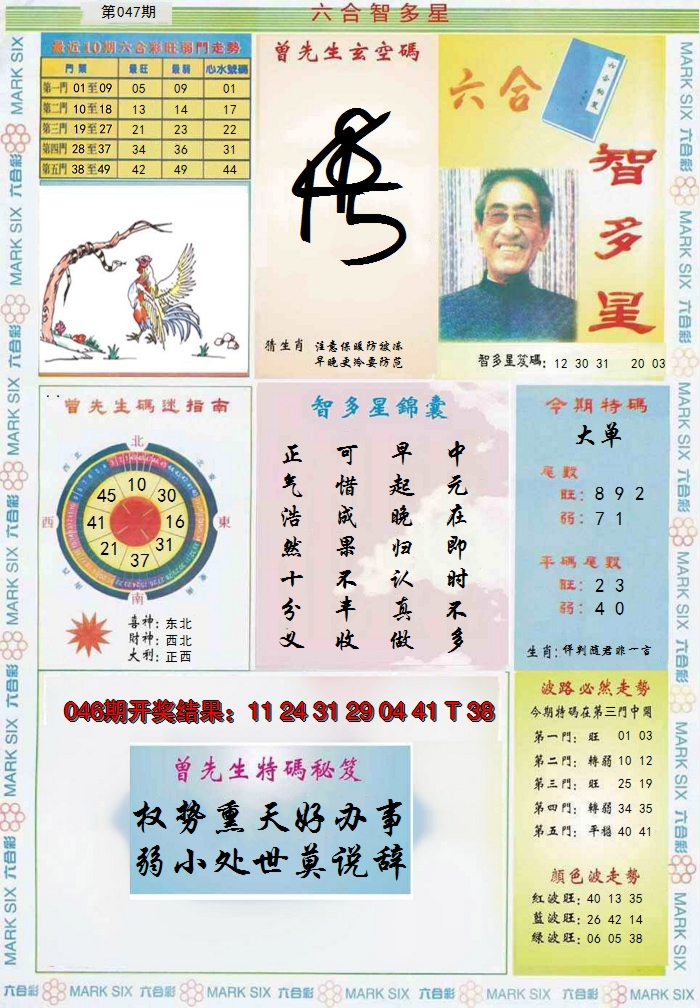 第047期
六合智多星
最近10期六合彩旺弱門走勢
門類 最旺 最弱 心水號碼
第一門 01至09 05 09 01
第二門 10至18 13 14 17
第三門 19至27 21 23 22
第四門 28至37 34 36 31
第五門 38至49 42 49 44
曾先生玄空碼
猜生肖 注意保暖防被冻
早晚更冷要防范
六合
智多星
智多星笈碼: 12 30 31 20 03
曾先生碼迷指南
北
西
東
南
10
30
16
31
37
21
41
45
喜神: 东北
财神: 西北
大利: 正西
智多星錦囊
中元在即时不多
早起晚归认真做
可惜成果不丰收
正气浩然十分义
今期特碼
大单
尾數
旺: 8 9 2
弱: 7 1
平碼尾數
旺: 2 3
弱: 4 0
生肖: 评判随君非一言
046期开奖结果: 11 24 31 29 04 41 T 38
曾先生特碼秘笈
权势熏天好办事
弱小处世莫说辞
波路必然走勢
今期特碼在第三門中開
第一門: 旺 01 03
第二門: 轉弱 10 12
第三門: 旺 25 19
第四門: 轉弱 34 35
第五門: 平穩 40 41
顏色波走勢
紅波旺: 40 13 35
藍波旺: 26 42 14
綠波旺: 06 05 38
六合彩 MARK SIX 六合彩 MARK SIX 六合彩 MARK SIX 六合彩 MARK SIX 六合彩 MARK SIX